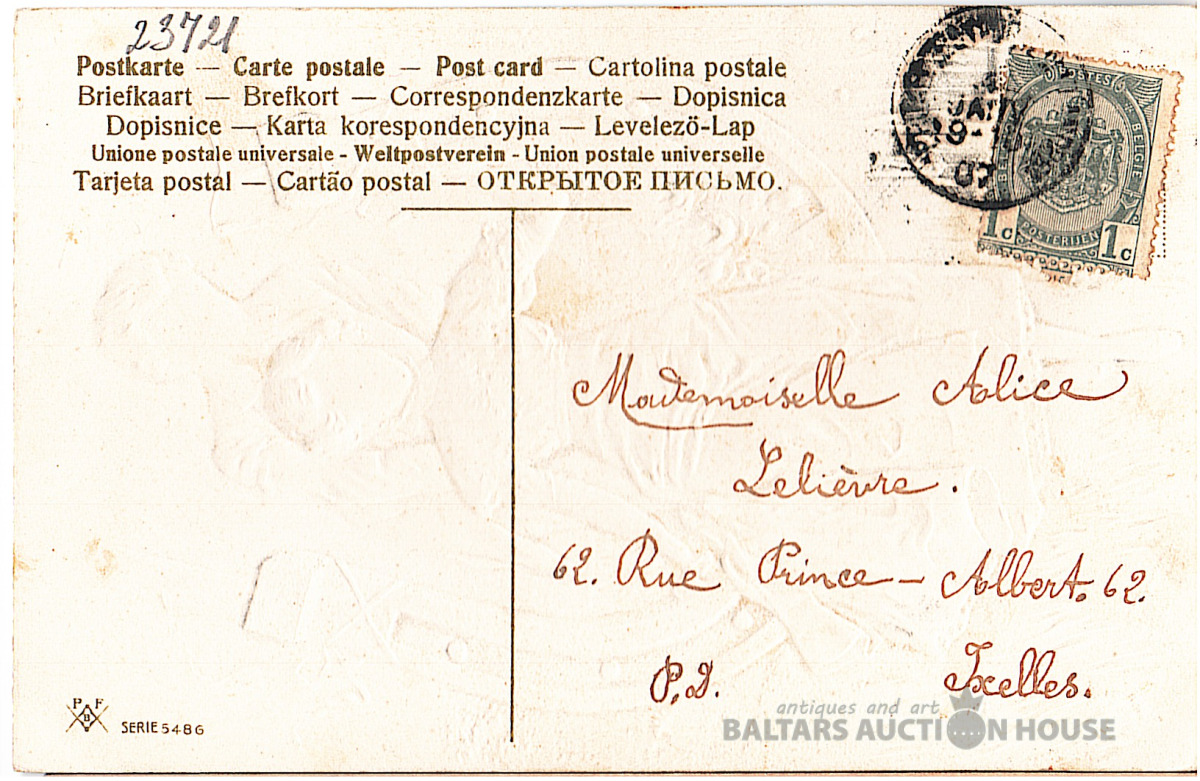 23721
Postkarte — Carte postale — Post card — Cartolina postale
Briefkaart — Brefkort — Correspondenzkarte — Dopisnica
Dopisnice — Karta korespondencyjna — Levelező-Lap
Unione postale universale - Weltpostverein - Union postale universelle
Tarjeta postal — Cartão postal — ОТКРЫТОЕ ПИСЬМО.
POSTES
BELGIQUE
POSTERIJEN
1c 1c
07
Mademoiselle Alice
Lelièvre.
62. Rue Prince - Albert. 62.
P.D. Ixelles.
P F
B
SERIE 5486
antiques and art
BALTARS AUCTION HOUSE